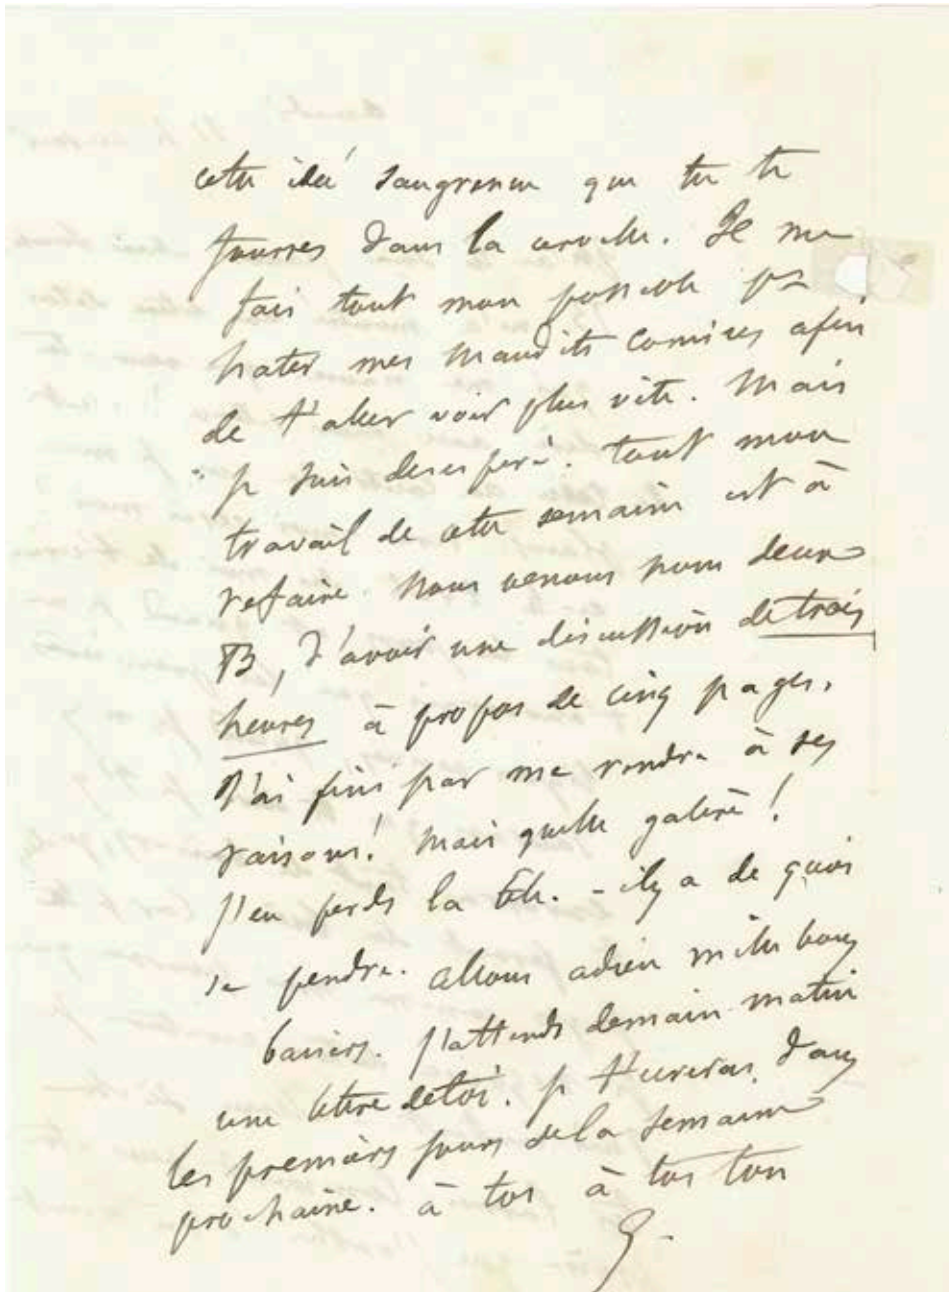 cette idée saugrenue que tu te
fourres dans la cervelle. Je me
fais tout mon possible pr
hater mes maudits comices afin
de t'aller voir plus vite. Mais
je suis desespéré. tout mon
travail de cette semaine est à
refaire. nous venons nous deux
B, d'avoir une discussion de trois
heures à propos de cinq pages.
J'ai fini par me rendre à ses
raisons! mais quelle galère!
j'en perds la tête. - il y a de quoi
se pendre. allons adieu mille bons
baisers. j'attends demain matin
une lettre de toi. je t'ecrirai dans
les premiers jours de la semaine
prochaine. à toi à toi ton
G.